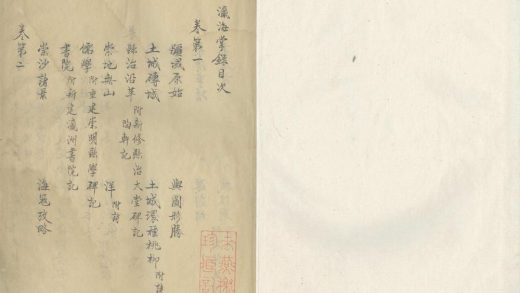 瀛海掌錄目次
卷第一
疆域原始 輿圖形勝
土城磚城 土城濠種桃柳附詩
縣治沿革附新修縣治大堂碑記 陶軒記
崇地無山 洋附詩
儒學附重建崇明縣學碑記
書院附新建瀛洲書院記
崇沙諸景 海寇攷略
卷第二